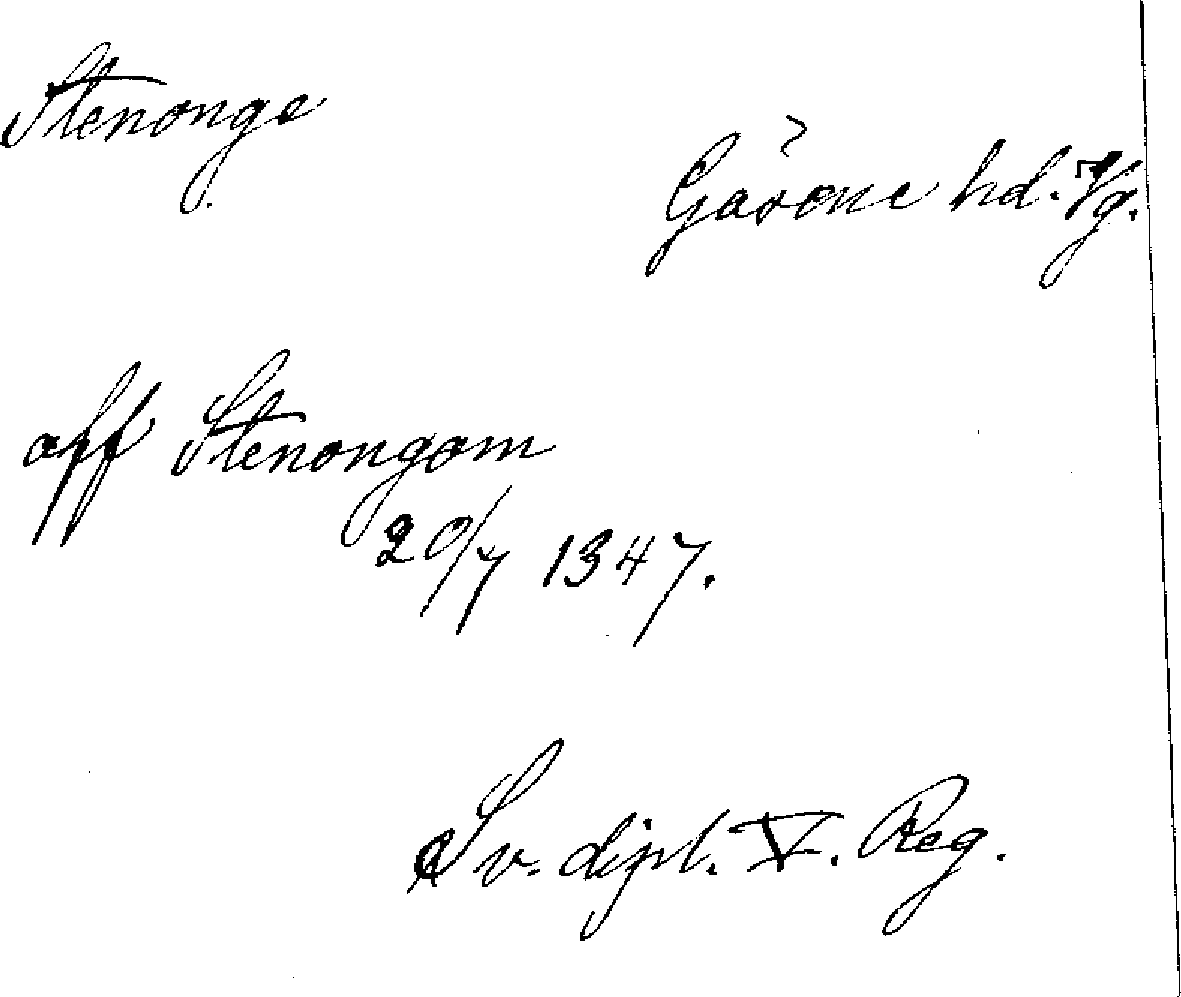 Stenonge
?
Gäsene hd. Vg.
aff Stenongom
20/7 1347.
Sv. dipl. V. Reg.